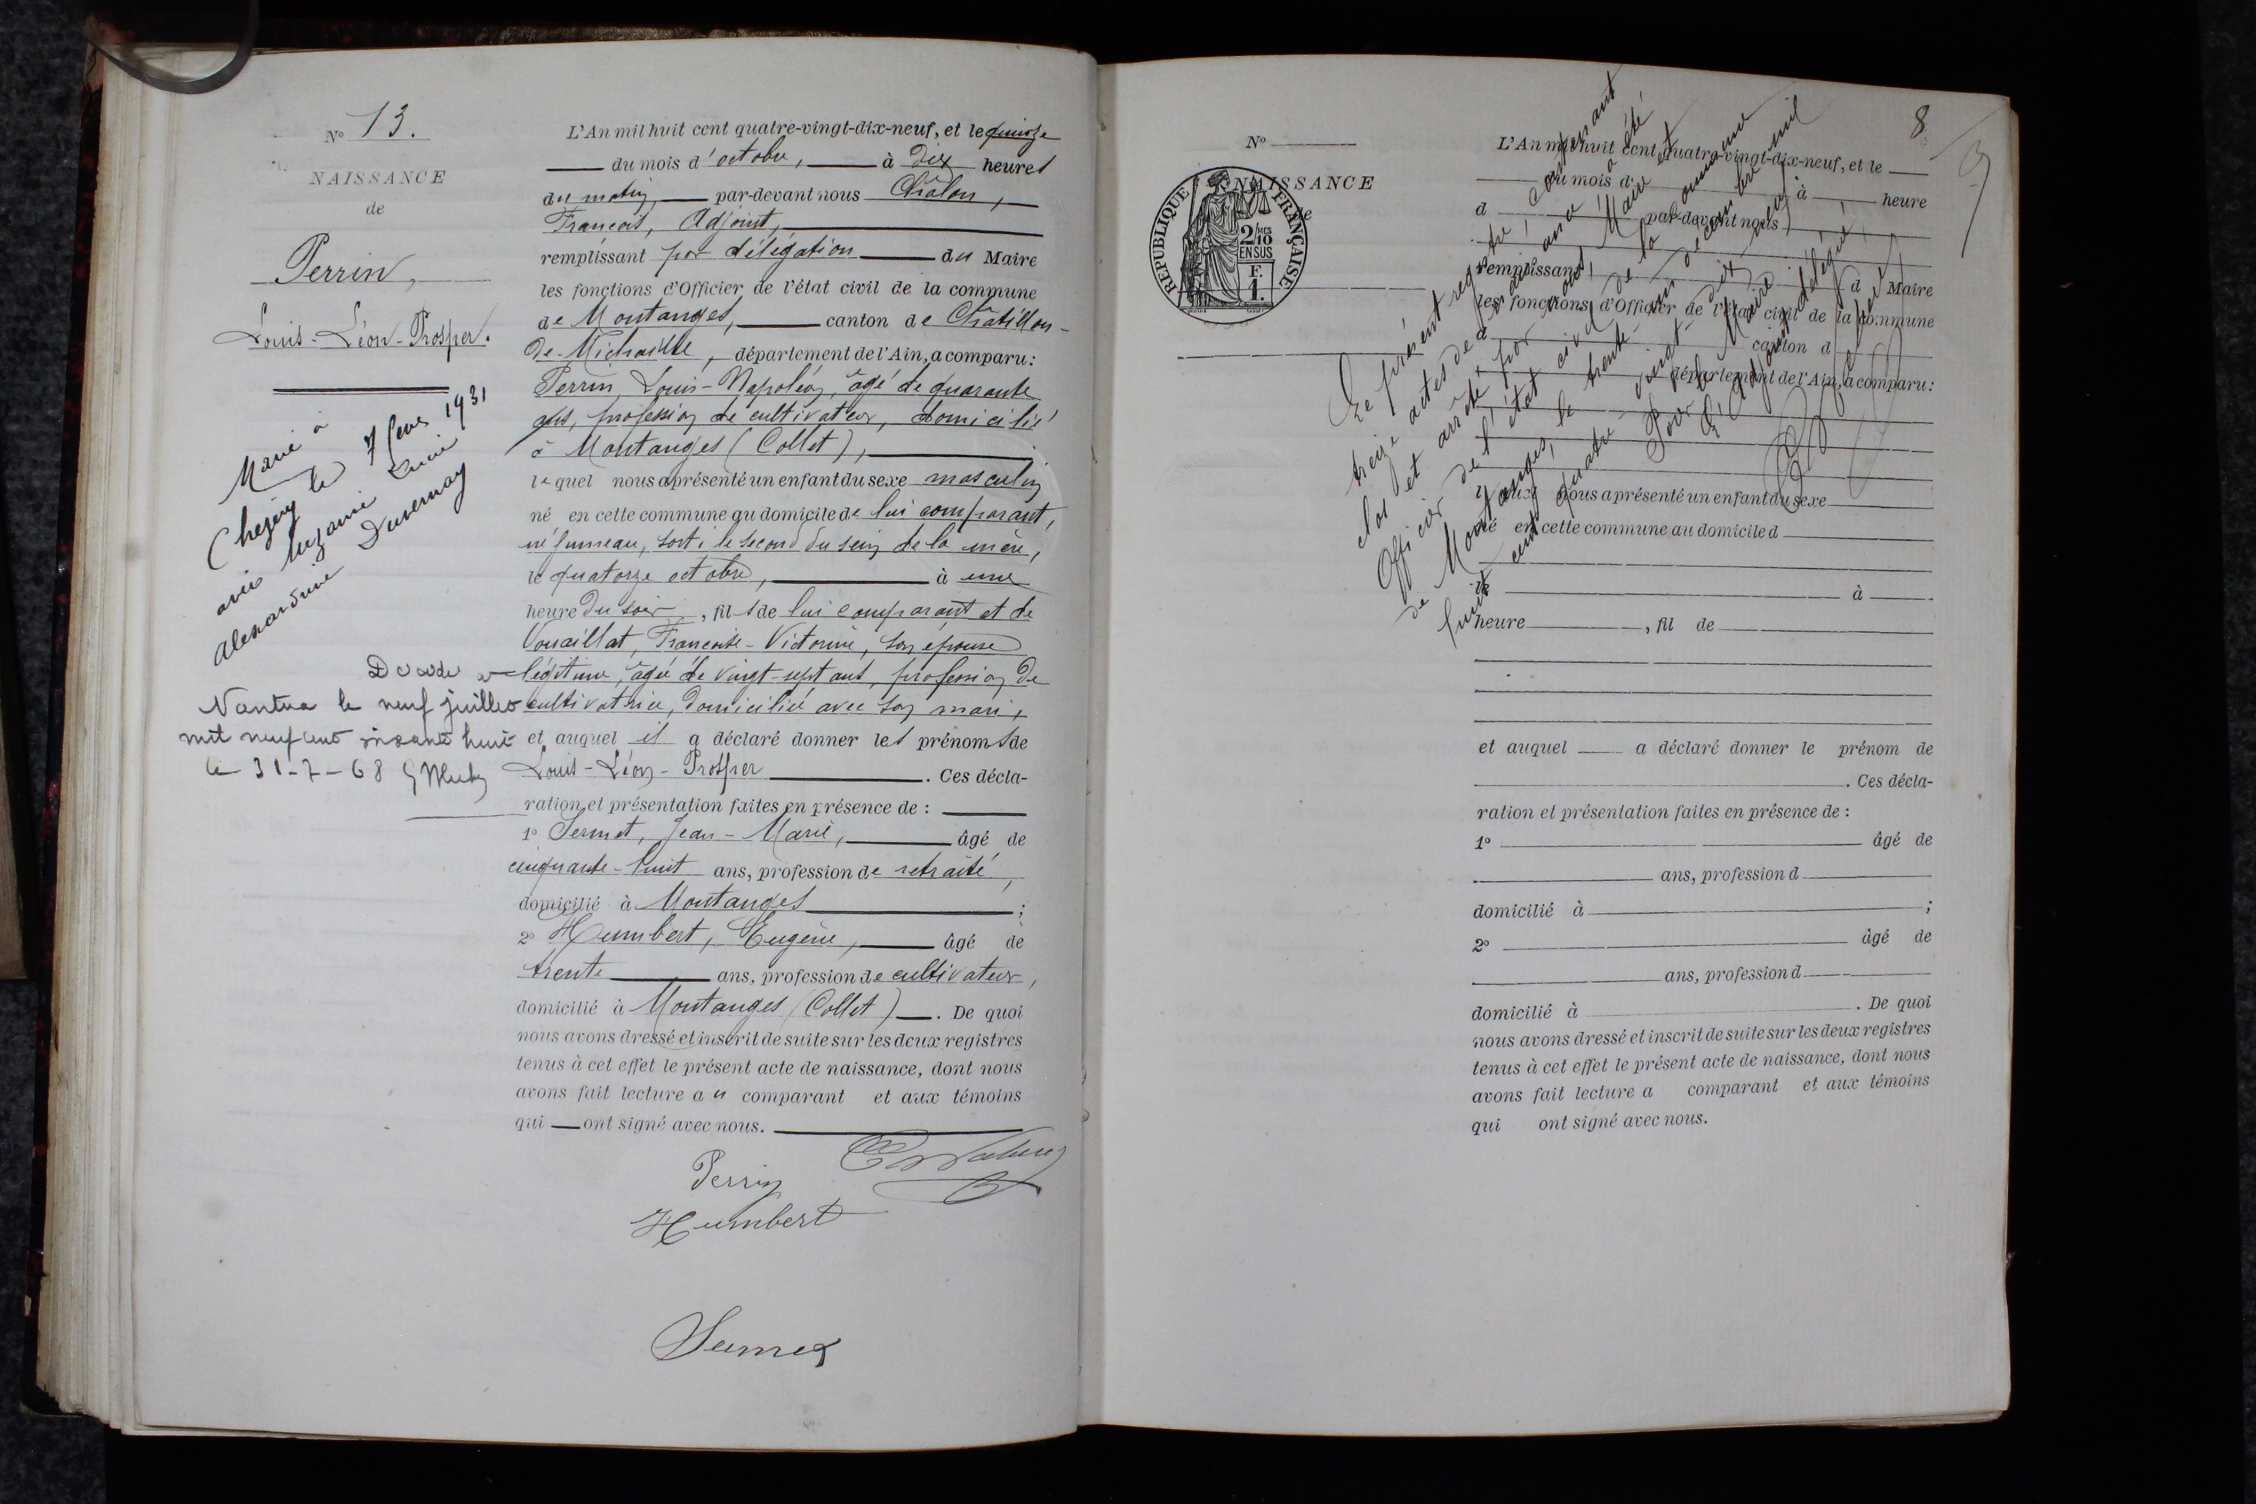 N° 13.
NAISSANCE
de
Perrin,
Louis-Léon-Prosper.
Marié à
Chézery le 7 fevr 1931
avec Suzanne Lucie
Alexandrine Duvernay
Décédé à
Nantua le neuf juillet
mil neuf cent soixante huit
le 31-7-68
L'An mil huit cent quatre-vingt-dix-neuf, et le quinze
du mois d'octobre, à dix heures
du matin, par-devant nous Châlon,
François, Adjoint,
remplissant par délégation du Maire
les fonctions d'Officier de l'état civil de la commune
de Montanges, canton de Châtillon-
de-Michaille, département de l'Ain, a comparu:
Perrin, Louis-Napoléon, âgé de quarante
ans, profession de cultivateur, domicilié
à Montanges (Collet),
lequel nous a présenté un enfant du sexe masculin
né en cette commune au domicile de lui comparant,
né jumeau, sorti le second du sein de la mère,
le quatorze octobre, à une
heure du soir, fils de lui comparant et de
Françoise-Victorine, son épouse
légitime, âgée de vingt-sept ans, profession de
cultivatrice, domiciliée avec son mari,
et auquel il a déclaré donner les prénoms de
Louis-Léon-Prosper. Ces décla-
ration et présentation faites en présence de :
1° Sermet, Jean-Marie, âgé de
cinquante-huit ans, profession de retraité,
domicilié à Montanges ;
2° Humbert, Eugène, âgé de
trente ans, profession de cultivateur,
domicilié à Montanges (Collet). De quoi
nous avons dressé et inscrit de suite sur les deux registres
tenus à cet effet le présent acte de naissance, dont nous
avons fait lecture au comparant et aux témoins
qui ont signé avec nous.
Perrin
Humbert
Sermet
8
N°
NAISSANCE
de
RÉPUBLIQUE FRANÇAISE
2/10 EN SUS
F. 1.
L'An mil huit cent quatre-vingt-dix-neuf, et le
du mois d à heure
d par-devant nous
remplissant d Maire
les fonctions d'Officier de l'état civil de la commune
d canton d
département de l'Ain, a comparu:
Le présent registre, comprenant
treize actes de a été
clos et arrêté par nous, Maire et
Officier de l'état civil de la commune
de Montanges, le trente-un décembre mil
huit cent quatre-vingt-dix-neuf
Pour le Maire
L'Adjoint délégué,
quel nous a présenté un enfant du sexe
né en cette commune au domicile d
le à
heure , fil de
et auquel a déclaré donner le prénom de
. Ces décla-
ration et présentation faites en présence de :
1° âgé de
ans, profession d
domicilié à ;
2° âgé de
ans, profession d
domicilié à . De quoi
nous avons dressé et inscrit de suite sur les deux registres
tenus à cet effet le présent acte de naissance, dont nous
avons fait lecture a comparant et aux témoins
qui ont signé avec nous.